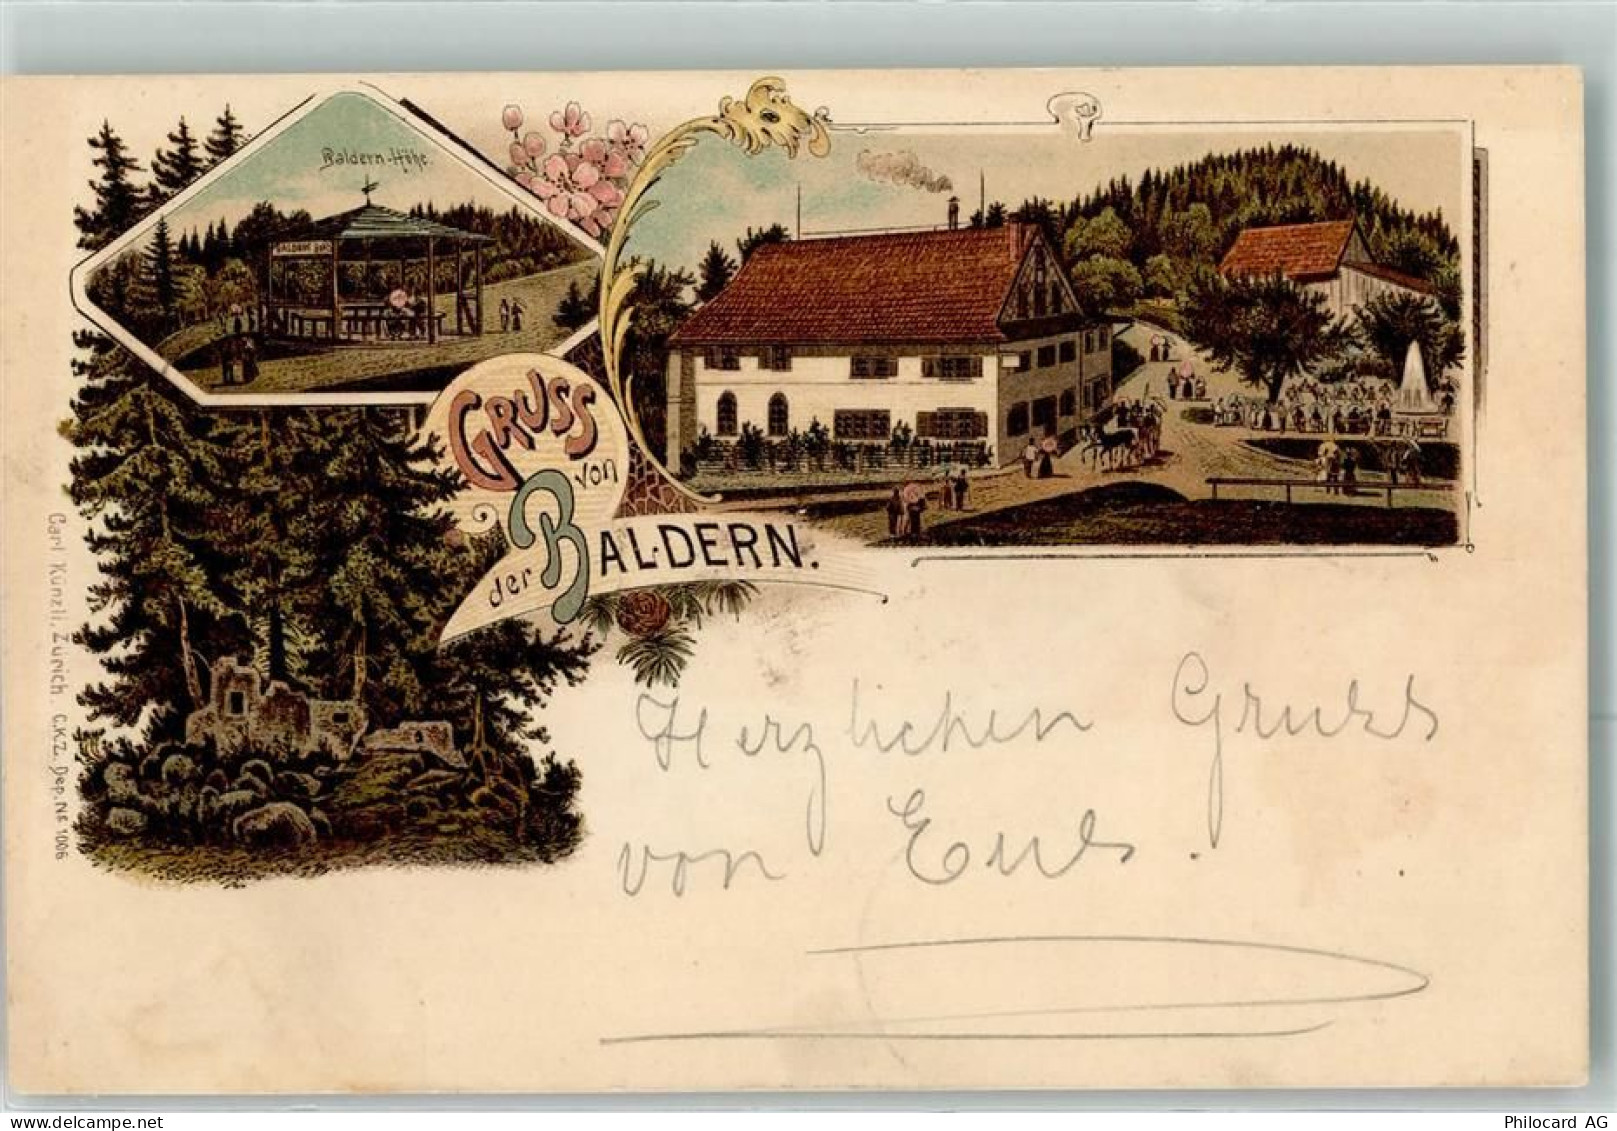 Baldern-Höhe.
GRUSS
von
der BALDERN.
Carl Künzli, Zürich. C.K.Z. Dep. No 1006
Herzlichen Gruss
von
Philocard AG